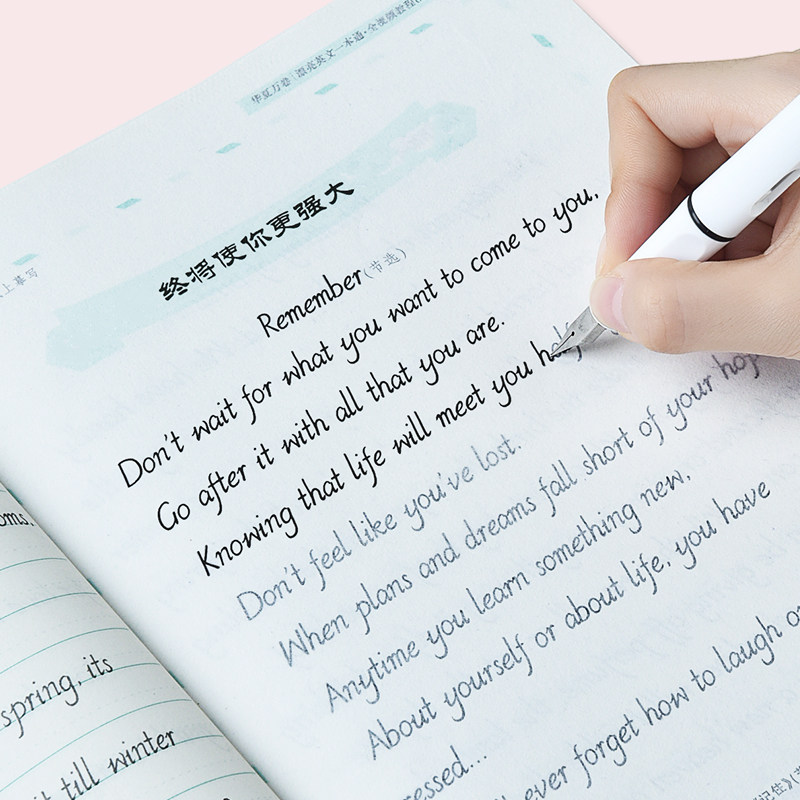 华夏万卷 漂亮英文一本通·全度级教程
上摹写
终将使你更强大
Remember(节选)
Don't wait for what you want to come to you,
Go after it with all that you are.
Knowing that life will meet you
Don't feel like you've lost.
When plans and dreams fall short of your
Anytime you learn something new,
About yourself or about life, you have
ever forget how to laugh
oms.
spring, its
till winter